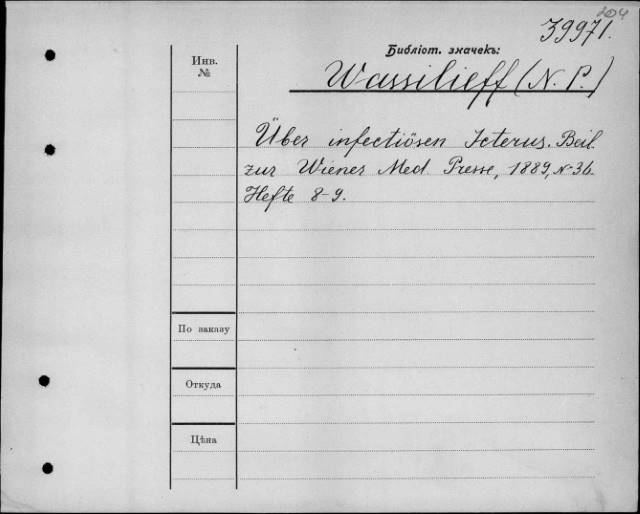 204
39971.
Библіот. значекъ:
Инв.
№
Wassilieff (N. P.)
Über infectiösen Icterus. Beil.
zur Wiener Med. Presse, 1889, N-36.
Hefte 8-9.
По заказу
Откуда
Цѣна